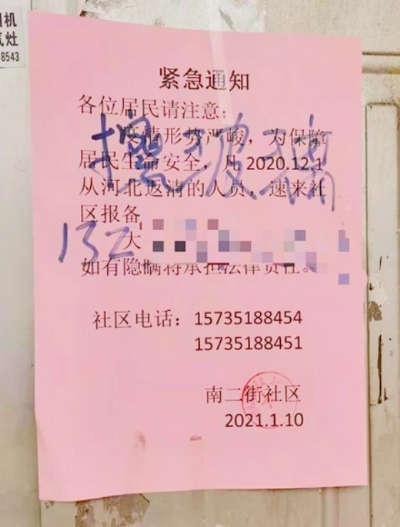 机
气灶
-8543
紧急通知
各位居民请注意：
疫情形势严峻，为保障
居民生命安全，凡 2020.12.1
从河北返清的人员，速来社
区报备，
擦玻璃
132
大
如有隐瞒将承担法律责任。
社区电话：15735188454
15735188451
南二街社区
2021.1.10